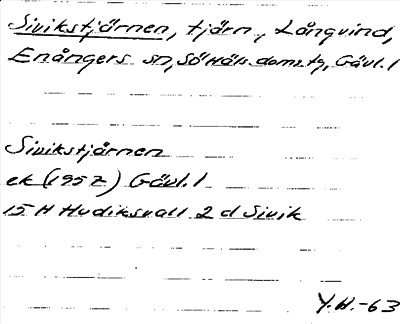 Sivikstjärnen, tjärn, Långvind,
Enångers sn, SöHäls doms.tg, Gävl.l
Sivikstjärnen
ek (1957) Gävl.l
15 H Hudiksvall 2 d Sivik
Y.H.-63